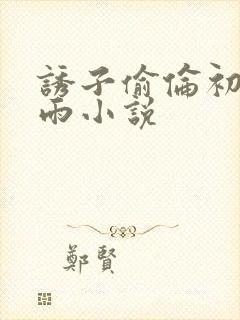 誘子偷倫初
雨小説
鄭賢